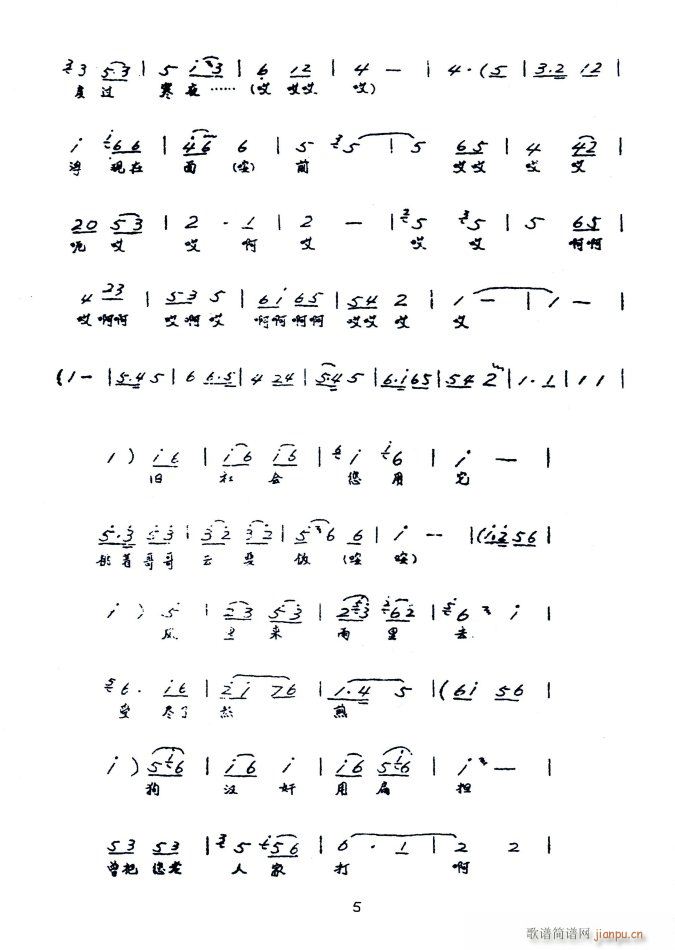 3 3 5·3 | 5 i 3 | 6 12 | 4 — | 4·(5 | 3·2 12 |
度过 寒夜……(哎 哎哎 哎)
i i66 | 46 6 | 5 35 | 5 65 | 4 42 |
现在 面(咹) 前 哎哎 哎 哎
20 53 | 2 · 1 | 2 — | 35 35 | 5 65 |
呃哎 哎 啊 哎 哎 哎 啊啊
4 23 | 53 5 | 6i 65 | 54 2 | 1 — | 1 — |
哎啊啊 哎啊哎 啊啊啊啊 哎哎哎 哎
(1— | 5·45 | 6 6·5 | 4 24 | 545 | 6·i65 | 54 2 | 1·1 | 1 1 |
1 ) i6 | i6 i6 | 6i i6 | i — |
旧 社会 您用 它
5·3 53 | 32 32 | 5 6 6 | i — — | (i·2 56 |
着哥哥 去 饭 (咹 咹)
i ) 5 | 23 53 | 2 3 62 | 56 i |
风 里来 雨里 去
56· i6 | 2i 76 | 1·4 5 | (6i 56 |
受 尽了 熬 煎
i ) 5i6 | i6 i | i6 5i6 | i — |
狗 汉奸 用扁 担
53 53 | 35 i56 | 6 · 1 | 2 2 |
曾把您老 人家 打 啊
5
歌谱简谱网
jianpu.cn